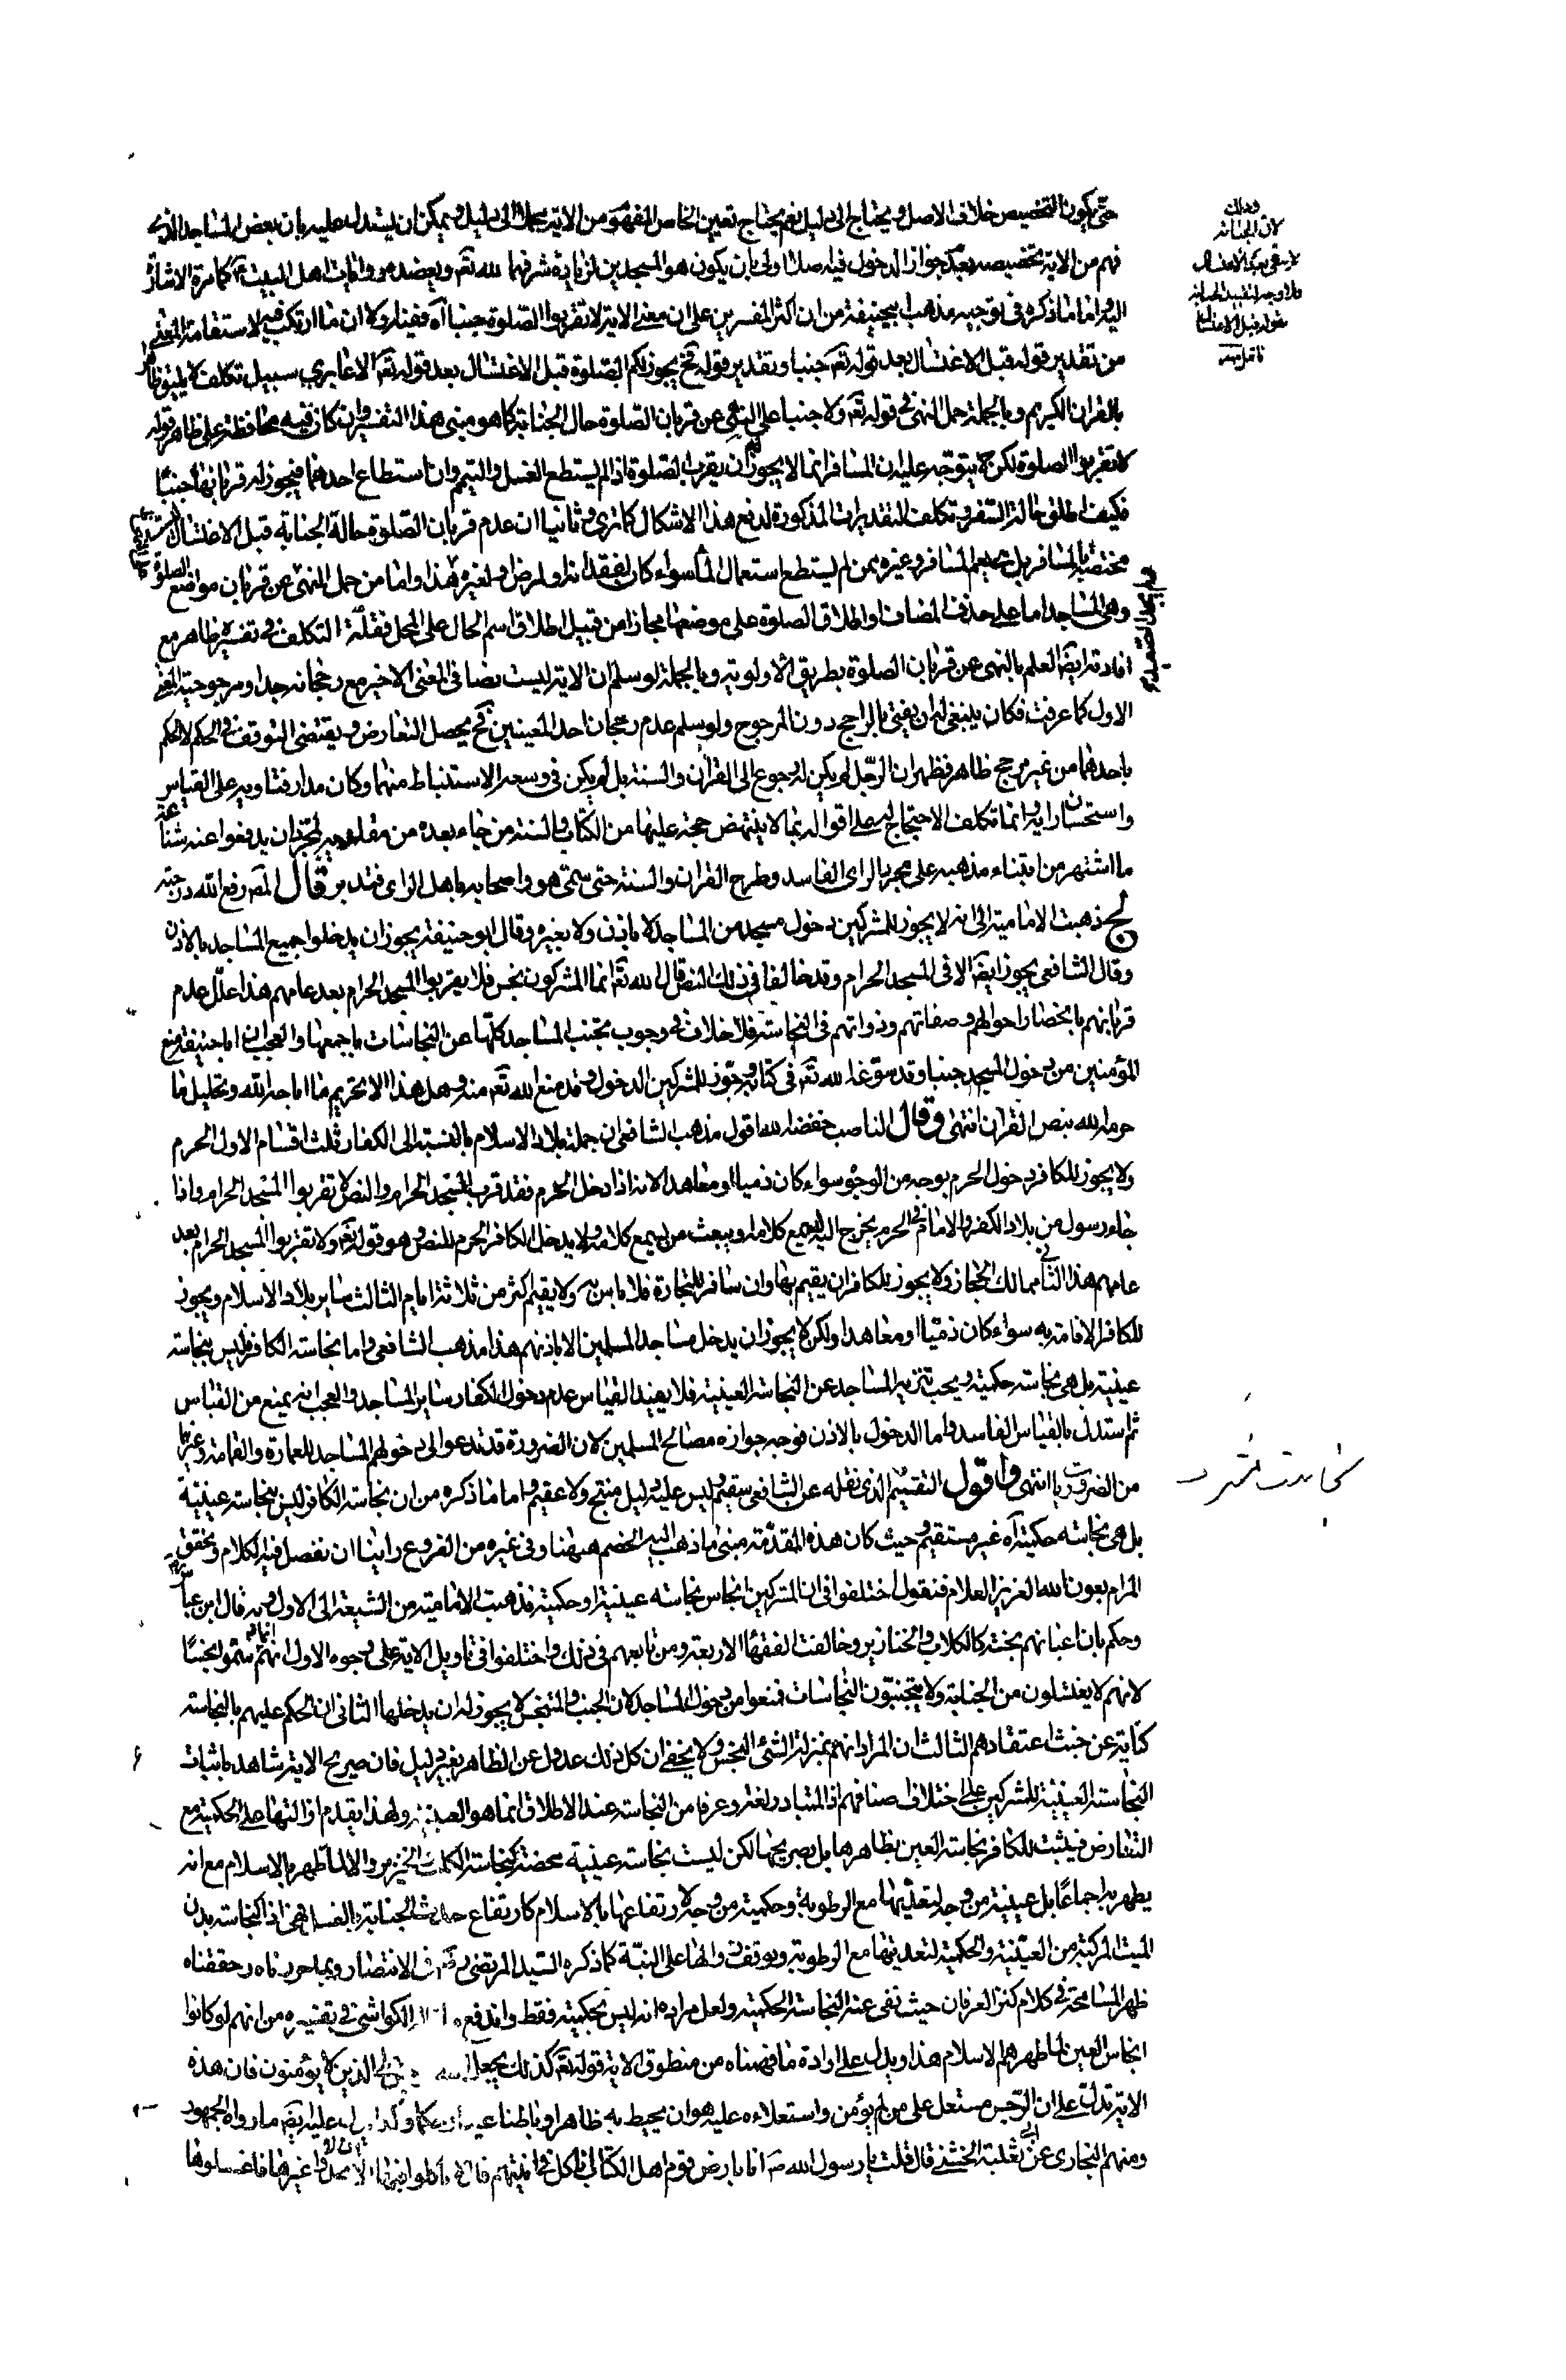 حتى يكون التخصيص خلاف الاصل ويحتاج الى دليل نعم يحتاج تعين الخاص المفهوم من الاية مجملا الى دليل ويمكن ان يستدل عليه بان بعض المساجد الذي
فهم من الاية تخصيصه بعدم جواز الدخول فيه اولى بان يكون هو المسجدين لزيادة شرفهما لله تعم ويعضده روايات اهل البيت كما مرة الاشارة
اليه واما ما ذكره في توجيه مذهب ابيحنيفة من ان اكثر المفسرين على ان معنى الاية لا تقربوا الصلوة جنبا آه ففيه اولا ان ما ارتكب فيه لاستقامة المعنى
من تقدير قوله قبل الاغتسال بعد قوله تعم جنبا وتقدير قوله فح يجوز لكم الصلوة قبل الاغتسال بعد قوله تعم الا عابري سبيل تكلف لا يليق
بالقران الكريم وبالجملة حمل النهى في قوله تعم ولا جنبا على النهى عن قربان الصلوة حال الجنابة كما هو مبنى هذا التفسير وان كان فيه محافظة على ظاهر قوله
لا تقربوا الصلوة لكن ح يتوجه عليه ان المسافر انما لا يجوز له ان يقرب الصلوة اذا لم يستطع الغسل والتيمم وان استطاع احدهما فيجوز له قربانها جنبا
فكيف اطلق حالة السفر وتكلف التقديرات المذكورة لدفع هذا الاشكال كما ترى وثانيا ان عدم قربان الصلوة حالة الجنابة قبل الاغتسال
مختصة بالمسافر بل يعم المسافر وغيره ممن لم يستطع استعمال الماء سواء كان لفقدانه او لمرض او لغيره هذا واما من حمل النهى عن قربان مواضع الصلوة
وهى المساجد اما على حذف المضاف او اطلاق الصلوة على موضعها مجازا من قبيل اطلاق اسم الحال على المحل فقلة التكلف في تفسيره ظاهر مع
افادته ايضا العلم بالنهى عن قربان الصلوة بطريق الاولوية وبالجملة لو سلم ان الاية ليست نصا في المعنى الاخير مع رجحانه جدا ومرجوحية المعنى
الاول كما عرفت فكان ينبغي له ان يفتي بالراجح دون المرجوح ولو سلم عدم رجحان احد المعنيين فح يحصل التعارض ويقتضى التوقف في الحكم لا الحكم
باحدهما من غير مرجح ظاهر فظهر ان الرجل لم يكن له رجوع الى القران والسنة بل لم يكن في وسعه الاستنباط منهما وكان مدار فتاويه على القياس
واستحسان رايه وانما تكلف الاحتجاج له على اقواله بما لا ينتهض حجة عليها من الكتاب والسنة من جاء بعده من مقلديه لمجرد ان يدفعوا عنه شناعة
ما اشتهر من ابتناء مذهبه على مجرد الراى الفاسد وطرح القران والسنة حتى سمى هو واصحابه باهل الراى فتدبر قال المص رفع الله درجته
لج ذهبت الامامية الى انه لا يجوز للمشركين دخول مسجد من المساجد لا باذن ولا بغيره وقال ابو حنيفة يجوز ان يدخلوا جميع المساجد بالاذن
وقال الشافعي يجوز ايضا الا في المسجد الحرام وقد خالفا في ذلك النص قال الله تعم انما المشركون نجس فلا يقربوا المسجد الحرام بعد عامهم هذا علل عدم
قربانهم بانحصار احوالهم وصفاتهم وذواتهم في النجاسة فلا خلاف في وجوب تجنب المساجد كلها عن النجاسات باجمعها والعجب ان ابا حنيفة منع
المؤمنين من دخول المسجد جنبا وقد سوغه الله تعم في كتابه وجوز للمشركين الدخول وقد منع الله تعم منه وهل هذا الا تحريم ما اباحه الله وتحليل ما
حرمه الله بنص القران انتهى وقال الناصب خفضه الله اقول مذهب الشافعي ان جملة بلاد الاسلام بالنسبة الى الكفار ثلث اقسام الاول الحرم
ولا يجوز للكافر دخول الحرم بوجه من الوجوه سواء كان ذميا او معاهدا لانه اذا دخل الحرم فقد قرب المسجد الحرام والنص لا تقربوا المسجد الحرام واذا
جاء رسول من بلاد الكفر والامام في الحرم يخرج اليه ليسمع كلامه او يبعث من يسمع كلامه ولا يدخل الكافر الحرم للنص وهو قوله تعم ولا تقربوا المسجد الحرام بعد
عامهم هذا الثاني ممالك الحجاز ولا يجوز للكافر ان يقيم بها وان سافر للتجارة فلا باس به ولا يقيم اكثر من ثلاثة ايام الثالث ساير بلاد الاسلام ويجوز
للكافر الاقامة به سواء كان ذميا او معاهدا ولكن لا يجوز ان يدخل مساجد المسلمين الا باذنهم هذا مذهب الشافعي واما نجاسة الكافر فليس بنجاسة
عينية بل هى نجاسة حكمية ويجب تنزيه المساجد عن النجاسة العينية فلا يفيد القياس عدم دخول الكفار ساير المساجد والعجب انه يمنع من القياس
ثم استدل بالقياس الفاسد واما الدخول بالاذن فوجه جوازه مصالح المسلمين لان الضرورة قد تدعو الى دخولهم المساجد للعمارة والقمامة وغيرها
من الضروريات انتهى واقول التقسيم الذي نقله عن الشافعي سقيم وليس عليه دليل منتج ولا عقيم واما ما ذكره من ان نجاسة الكافر ليس بنجاسة عينية
بل هى نجاسة حكمية آه غير مستقيم وحيث كان هذه المقدمة مبنى ما ذهب اليه الخصم ههنا وفي غيره من الفروع راينا ان نفصل فيه الكلام ونحقق
المرام بعون الله العزيز العلام فنقول اختلفوا في ان المشركين انجاس نجاسة عينية او حكمية فذهبت الامامية من الشيعة الى الاول وبه قال ابن عباس
وحكم بان اعيانهم نجسة كالكلاب والخنازير وخالفت الفقهاء الاربعة ومن تابعهم في ذلك واختلفوا في تاويل الاية على وجوه الاول انهم انما سموا نجسا
لانهم لا يغتسلون من الجنابة ولا يتجنبون النجاسات فمنعوا من دخول المساجد لان الجنب والمتنجس لا يجوز له ان يدخلها الثاني ان الحكم عليهم بالنجاسة
كناية عن خبث اعتقادهم الثالث ان المراد انهم بمنزلة الشئ النجس ولا يخفى ان كل ذلك عدول عن الظاهر بغير دليل فان صريح الاية شاهد باثبات
النجاسة العينية للمشركين على اختلاف اصنافهم اذ المتبادر لغة وعرفا من النجاسة عند الاطلاق انما هو العينية ولهذا يقدم ازالتها على الحكمية مع
التعارض فيثبت للكافر نجاسة العين بظاهرها بل بصريحها لكن ليست نجاسة عينية محضة كنجاسة الكلب والخنزير والا لما طهر بالاسلام مع انه
يطهر به اجماعا بل عينية من وجه لتعديها مع الرطوبة وحكمية من وجه لارتفاعها بالاسلام كارتفاع حدث الجنابة بالغسل فهى اذا كنجاسة بدن
الميت المركبة من العينية والحكمية لتعديتها مع الرطوبة وتوقف زوالها على النية كما ذكره السيد المرتضى في الانتصار وبما حررناه وحققناه
ظهر المسامحة في كلام كنز العرفان حيث نفى عنه النجاسة الحكمية ولعل مراده انه ليس بحكمية فقط واندفع الكواشى في تفسيره من انهم لو كانوا
انجاس العين لما طهرهم الاسلام هذا ويدل على ارادة ما فهمناه من منطوق الاية قوله تعم كذلك يجعل الله على الذين لا يؤمنون فان هذه
الاية تدل على ان الرجس مستعل على من لم يؤمن واستعلاءه عليه هو ان يحيط به ظاهرا وباطنا وكذا يدل عليه ايضا ما رواه الجمهور
ومنهم البخارى عن ابى ثعلبة الخشنى قال قلت يا رسول الله ص انا بارض قوم اهل الكتاب افناكل في انيتهم غيرها فاغسلوها
وذلك
لان الجنابة
لا يبقى بعد الاغتسال
فلا وجه لتقييد الجنابة
بقوله قبل الاغتسال
نجاست مشرك